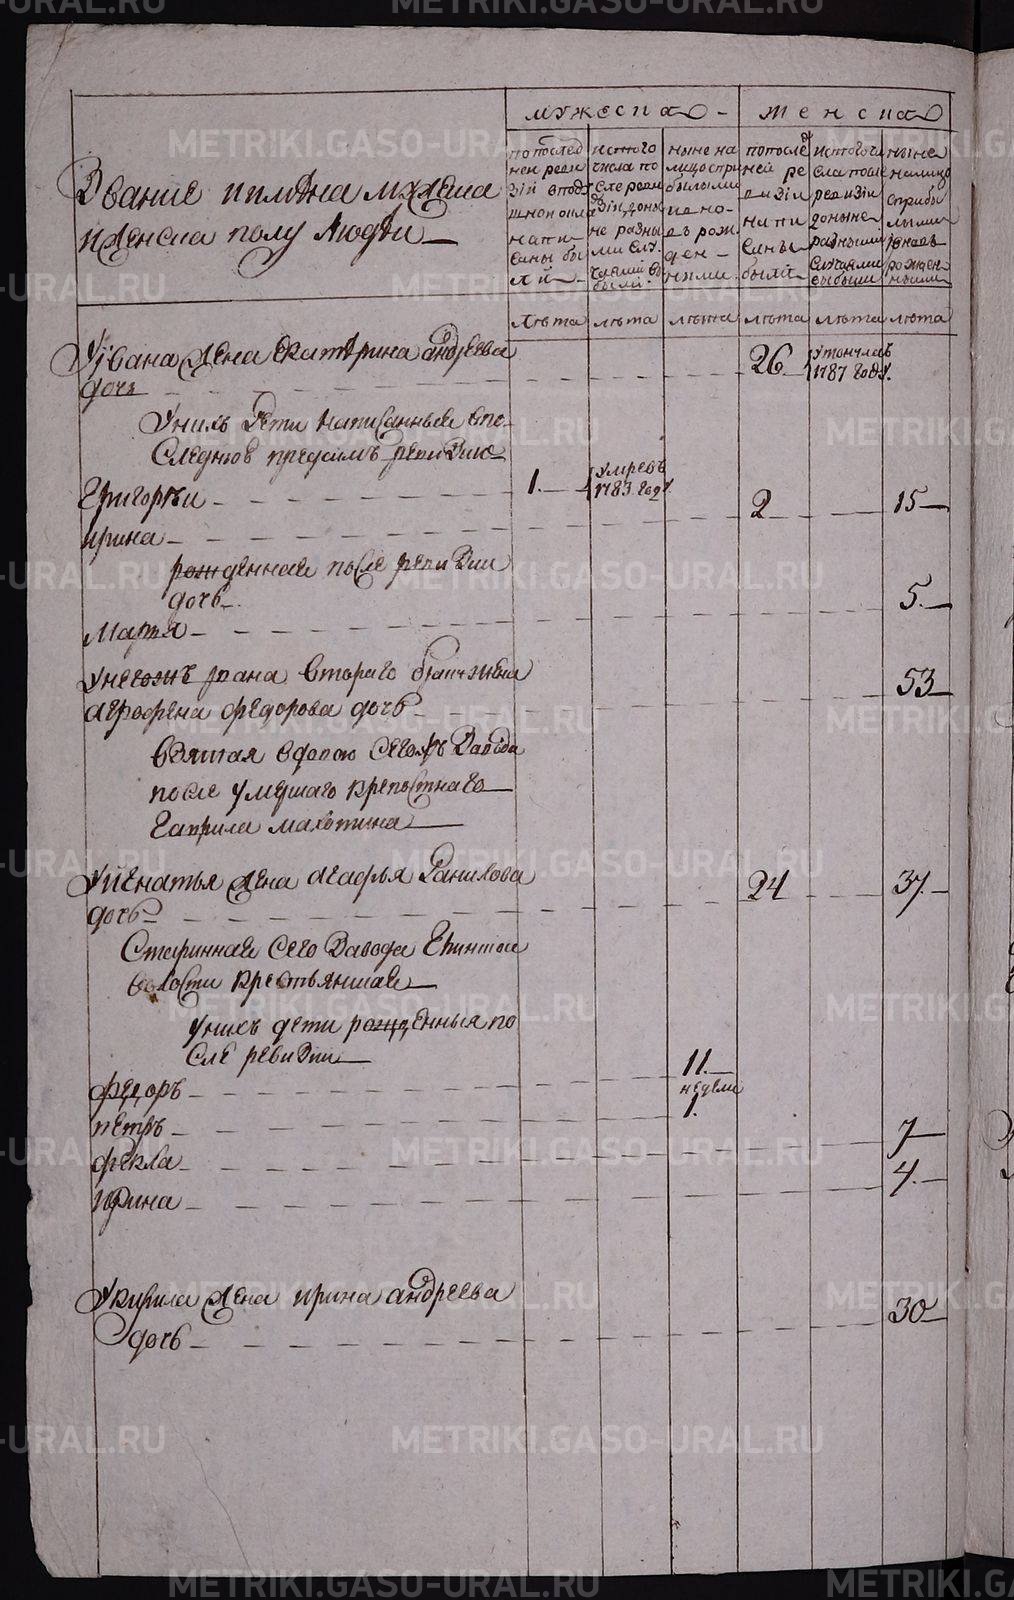 мужеска
женска
Звание и имена мужеска
и женска полу людей
по послед
ней реви
зіи в под
написаны бы
ли
ис того
числа по
сле реви
зіи до ны
не разны
ми слу
чаями вы
были
ныне на
лицо с при
былыми
и вно
вь рож
ден
ными
по после
ней ре
визіи
напи
саны
были
ис того чи
сла после
ревизіи
доныне
разными
случаями
выбыли
ныне
на лицо
с прибы
лыми
и вновь
рожден
ными
лета лета лета лета лета лета
У Ивана жена Екатерина андреева
дочь
26
утончла в
1787 году
У них дети написанные в по
следнюю пред сим ревизию
Григорей
1.
умре в
1783 году
ирина
2
15
рожденная после ревизии
дочь
Марфа
5.
У него ж ивана втораго брачу жена
Аграфена федорова дочь
53
взятая вдовою сего ж завода
после умершаго крепостнаго
Гаврила махотина
У Игнатья жена Агафья Данилова
дочь
24
37.
Старинная сего завода
волости крестьянская
У них дети рожденныя по
сле ревизии
федоръ
11.
недели
петръ
1.
фекла
7
Ирина
4.
У кирила жена ирина андреева
дочь
30
METRIKI.GASO-URAL.RU